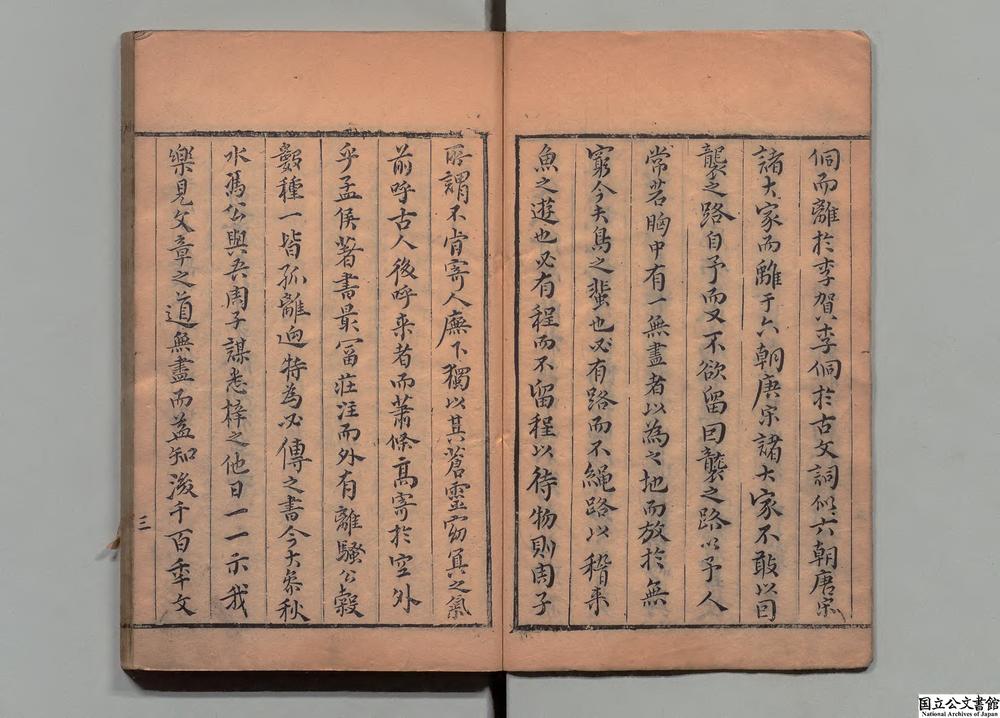 侗而離於李賀李侗於古文詞似六朝唐宋
諸大家而離于六朝唐宋諸大家不敢以因
襲之路自予而又不欲留因襲之路以予人
常若胸中有一無盡者以為之地而放於無
窮今夫鳥之蜚也必有路而不繩路以稽来
魚之遊也必有程而不留程以待物則周子
所謂不肯寄人廡下獨以其蒼靈窈冥之氣
前呼古人後呼来者而蕭條高寄於空外
乎孟侯著書最富莊注而外有離騷公穀
數種一皆孤離迥特為必傳之書今大參秋
水馮公與吾周子謀悉梓之他日一一示我
樂見文章之道無盡而益知後千百年文
三
国立公文書館
National Archives of Japan